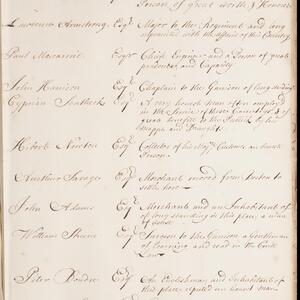 Person of great worth & Honour
Lawrence Armstrong Esqr Major to the Regiment and long
acquainted with the affairs of this Country
Paul Mascarene Esqr Chief Engineer and a Person of great
prudence and Capacity
John Harrison Esqr Chaplain to the Garrison of long standing
Cyprian Southack Esqr A very honest man often employed
in the Service of these and of
great benefit to the Publick by his
Mapps and Draughts
Hibert Newton Esqr Collector of his Majtys Customs an honest
Person
Arthur Savage Esqr Merchant moved from Boston to
settle here
John Adams Esqr Merchant and an Inhabitant of
of long standing in this place, a man
William Skene Esqr Surgeon to the Garrison a Gentleman
of Learning and read in the Civil
Law
Peter Boudre Esqr An Englishman and Inhabitant of
this place reputed an honest man